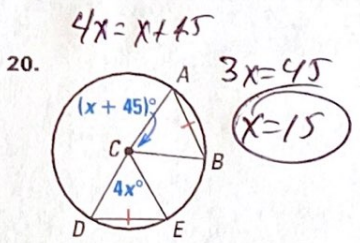 4x = x + 45
20.
3x = 45
x = 15
A
(x + 45)°
C
B
4x°
D
E